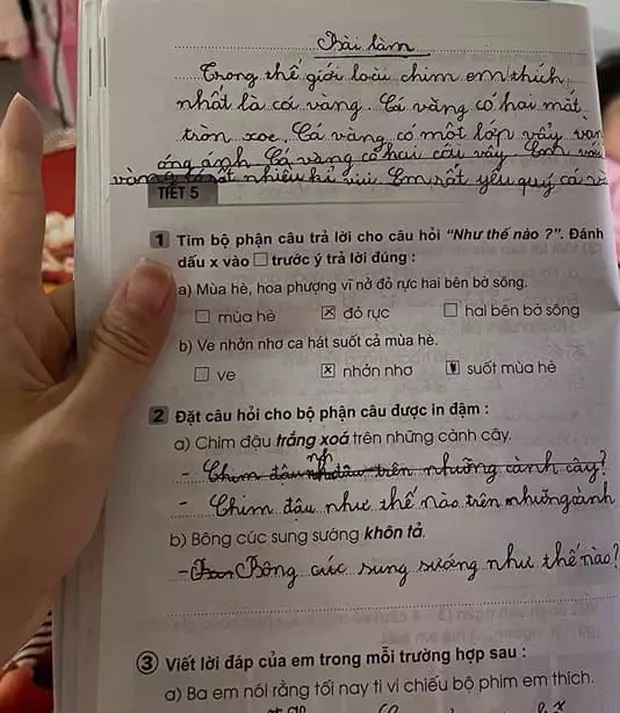 Bài làm
Trong thế giới loài chim em thích
nhất là cá vàng. Cá vàng có hai mắt
tròn xoe. Cá vàng có một lớp vảy vàn
óng ánh Cá vàng có hai cái vây Em
vàng rất nhiều khi vui. Em rất yêu quý cá
TIẾT 5
1 Tìm bộ phận câu trả lời cho câu hỏi "Như thế nào ?". Đánh
dấu x vào □ trước ý trả lời đúng :
a) Mùa hè, hoa phượng vĩ nở đỏ rực hai bên bờ sông.
□ mùa hè ☒ đỏ rực □ hai bên bờ sông
b) Ve nhởn nhơ ca hát suốt cả mùa hè.
□ ve ☒ nhởn nhơ suốt mùa hè
2 Đặt câu hỏi cho bộ phận câu được in đậm :
a) Chim đậu trắng xoá trên những cành cây.
- Chim đậu trên những cành cây?
- Chim đậu như thế nào trên những cành
b) Bông cúc sung sướng khôn tả.
- Bông cúc sung sướng như thế nào?
3 Viết lời đáp của em trong mỗi trường hợp sau :
a) Ba em nói rằng tối nay ti vi chiếu bộ phim em thích.